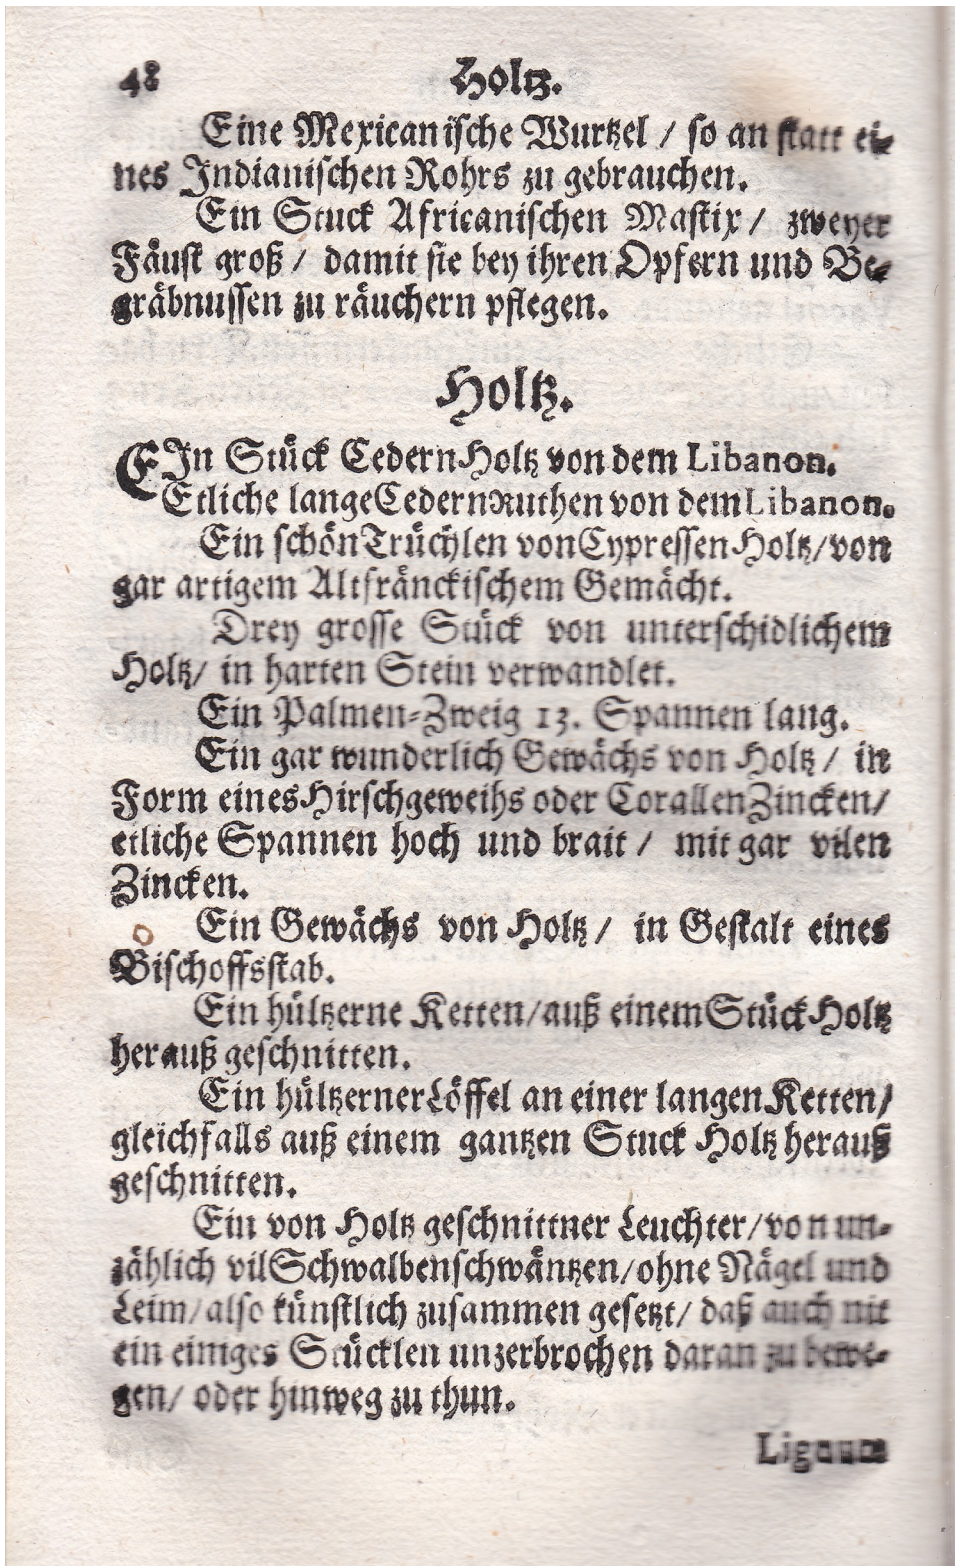 48 Holtz.
Eine Mexicanische Wurtzel / so an statt ei-
nes Indianischen Rohrs zu gebrauchen.
Ein Stuck Africanischen Mastix / zweyer
Fäust groß / damit sie bey ihren Opfern und Be-
gräbnussen zu räuchern pflegen.
Holtz.
EIn Stück Cedern Holtz von dem Libanon.
Etliche lange Cedern Ruthen von dem Libanon.
Ein schön Trüchlen von Cypressen Holtz / von
gar artigem Altfränckischem Gemächt.
Drey grosse Stück von unterschidlichem
Holtz / in harten Stein verwandlet.
Ein Palmen-Zweig 13. Spannen lang.
Ein gar wunderlich Gewächs von Holtz / in
Form eines Hirschgeweihs oder Corallen Zincken /
etliche Spannen hoch und brait / mit gar vilen
Zincken.
Ein Gewächs von Holtz / in Gestalt eines
Bischoffsstab.
Ein hültzerne Ketten / auß einem Stück Holtz
herauß geschnitten.
Ein hültzerner Löffel an einer langen Ketten /
gleichfalls auß einem gantzen Stuck Holtz herauß
geschnitten.
Ein von Holtz geschnittner Leuchter / von un-
zählich vil Schwalbenschwäntzen / ohne Nägel und
Leim / also künstlich zusammen gesetzt / daß auch nit
ein einiges Stücklen unzerbrochen daran zu bewe-
gen / oder hinweg zu thun.
Lignum